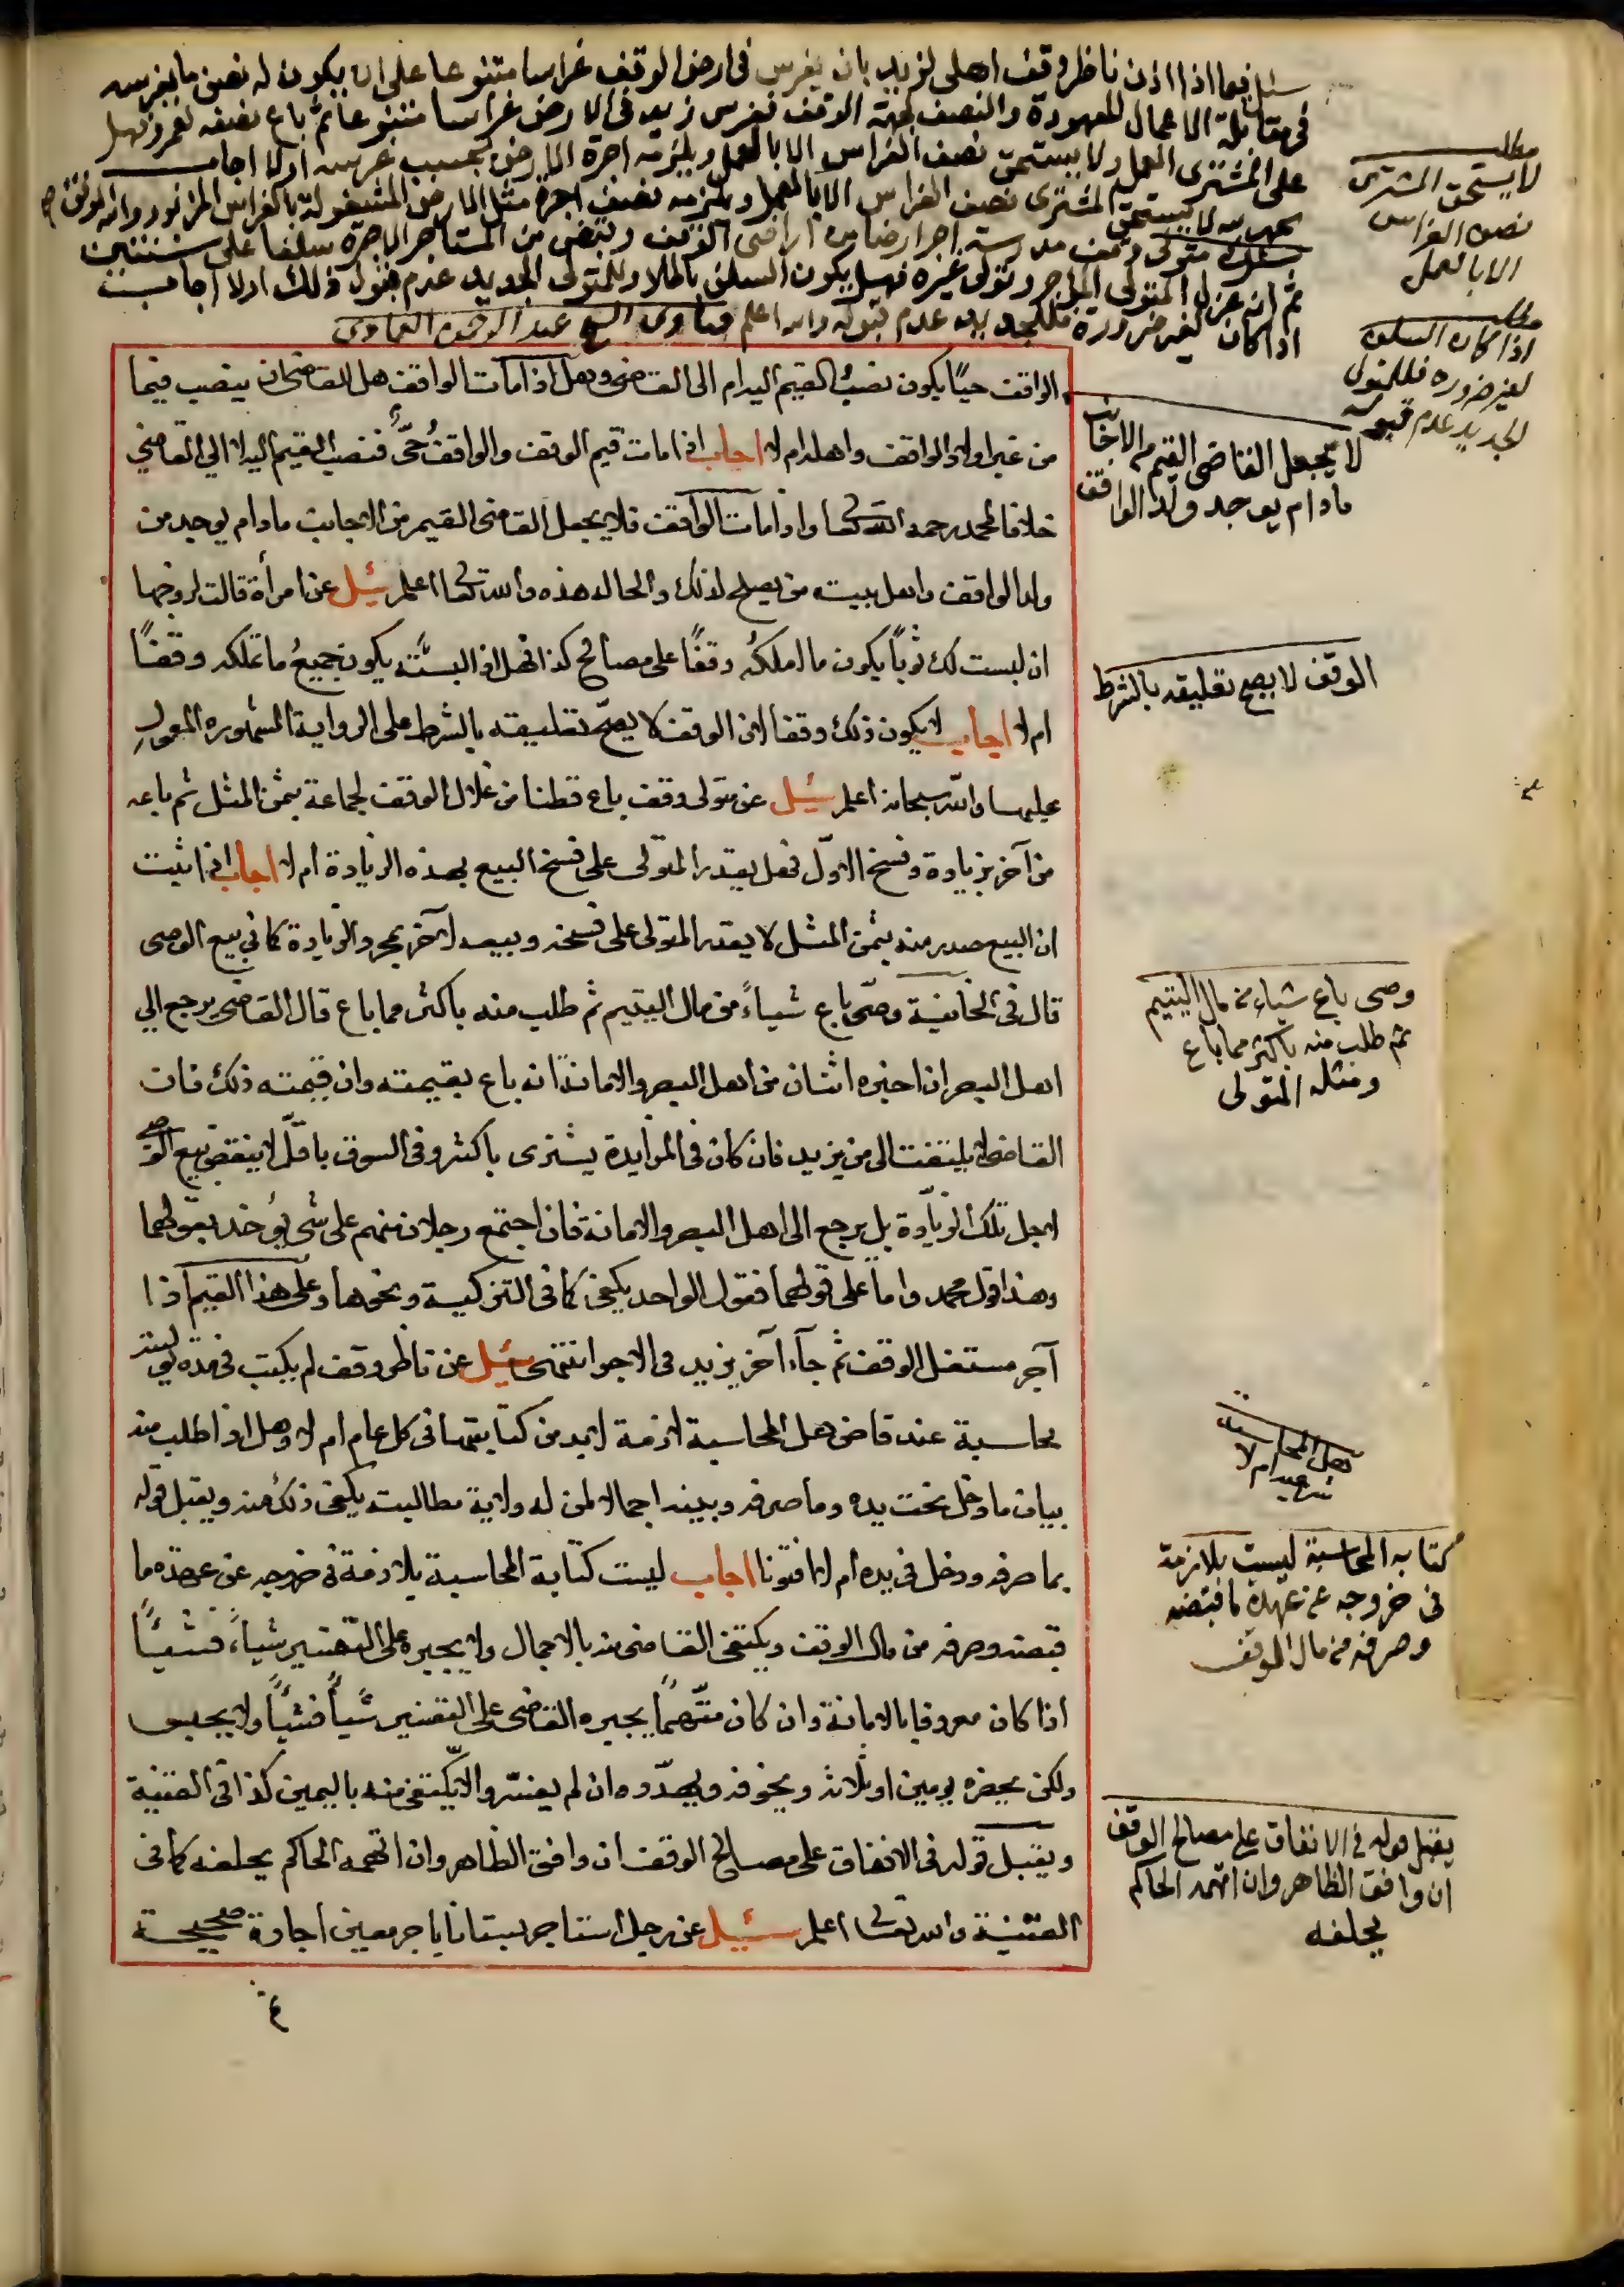 سئل فيما اذا اذن ناظر وقف اهلى لزيد بان يغرس فى ارض الوقف غراسا متنوعا على ان يكون له نصف ما يغرسه
فى مقابلة الاعمال المعهودة والنصف لجهة الوقف فغرس زيد فى الارض غراسا متنوعا ثم باع نصفه لعمرو فهل
على المشترى العمل ولا يستحق نصف الغراس الا بالعمل ويلزمه اجرة الارض بحسب غرسه اولا اجاب
لا يستحق المشترى نصف الغراس الا بالعمل ويلزمه نصف اجرة مثل الارض المشغولة بالغراس المزبور والله الموفق
سئل متولى وقف مدرسة اجر ارضا من اراضى الوقف وقبض من المستاجر الاجرة سلفا على سنتين
ثم انه عزل المتولى المؤجر وتولى غيره فهل يكون السلف باطلا وللمتولى الجديد عدم قبول ذلك اولا اجاب
اذا كان لغير ضرورة فللجديد عدم قبوله والله اعلم فتاوى الشيخ عبد الرحمن العمادى
مطلب
لا يستحق المشترى
نصف الغراس
الا بالعمل
مطلب
اذا كان السلف
لغير ضرورة فللمتولى
الجديد عدم قبوله
الواقف حيًا يكون نصبُ القيم اليه ام الى القاضى وهل اذا مات الواقف هل للقاضى ان ينصب قيما
من غير اولاد الواقف واهله ام لا اجاب اذا مات قيم الوقف والواقف حىٌّ فنصب القيم اليه لا الي القاضي
خلافا لمحمد رحمه الله تعالى واذا مات الواقف فلا يجعل القاضى القيم من الاجانب مادام يوجد من
ولد الواقف واهل بيته من يصلح لذلك والحال هذه والله تعالى اعلم سئل عن امرأة قالت لزوجها
ان لبست لك ثوبًا يكون ما املكهُ وقفًا على مصالح كذا فهل اذا لبسته يكون جميعُ ما تملكه وقفًا
ام لا اجاب لا يكون ذلك وقفا لان الوقف لا يصحّ تعليقه بالشرط على الرواية المشهوره المعول
عليها والله سبحانه اعلم سئل عن متولى وقف باع قطنا من غلال الوقف لجماعة بثمن المثل ثم باعه
من آخر بزيادة وفسخ الاول فهل يقدر المتولى على فسخ البيع بهذه الزيادة ام لا اجاب اذا ثبت
ان البيع صدر منه بثمن المثل لا يقدر المتولى على فسخه وبيعه لآخر بمجرد الزيادة كما في بيع الوصى
قال فى الخانية وصى باع شياءً من مال اليتيم ثم طلب منه باكثر مما باع قال القاضى يرجع الي
اهل البصر ان اخبره اثنان من اهل البصر والامانة انه باع بقيمته وان قيمته ذلك فان
القاضى لا يلتفت الى من يزيد فان كان فى المزايدة يشترى باكثر وفى السوق باقلّ لا ينتقض بيع الوصى
لاجل تلك الزيادة بل يرجع الى اهل البصر والامانة فان اجتمع رجلان منهم على شى يؤخذ بقولهما
وهذا قول محمد واما على قولهما فقول الواحد يكفى كما فى التزكية ونحوها وعلى هذا القيم اذا
آجر مستغل الوقف ثم جآء آخر يزيد فى الاجر انتهى سئيل عن ناظر وقف لم يكتب فى مدة توليته
محاسبة عند قاض هل المحاسبة لازمة لابد من كتابتها فى كل عام ام لا وهل اذا طلب منه
بيان ما دخل تحت يده وما صرفه وبينه اجمالا لمن له ولاية مطالبته يكفى ذلك منه ويقبل قوله
بما صرفه ودخل فى يده ام لا افتونا اجاب ليست كتابة المحاسبة بلازمة فى خروجه عن عهدة ما
قبضه وصرفه من مال الوقف ويكتفى القاضى منه بالاجمال ولا يجبره على التفسير شياءً فشيئًا
اذا كان معروفا بالامانة وان كان متّهمًا يجبره القاضى على التفسير شيأً فشيأً ولا يحبس
ولكن يحضره يومين او ثلاثه ويخوفه ويهدّده ان لم يفسّر والا يكتفى منه باليمين كذا فى القنية
ويقبل قوله فى الانفاق على مصالح الوقف ان وافق الظاهر وان اتهمه الحاكم يحلفه كما فى
القنية والله تعالى اعلم سئيل عن رجل استاجر بستانا باجر معين اجارة صحيحة
لا يجعل القاضى القيم من الاجانب
مادام يوجد ولد الواقف
الوقف لا يصح تعليقه بالشرط
وصى باع شياء من مال اليتيم
ثم طلب منه باكثر مما باع
ومثله المتولى
هل المحاسبة
ام لا
كتابه المحاسبة ليست بلازمة
فى خروجه عن عهدة ما قبضه
وصرفه من مال الوقف
يقبل قوله فى الانفاق على مصالح الوقف
ان وافق الظاهر وان اتهمه الحاكم
يحلفه